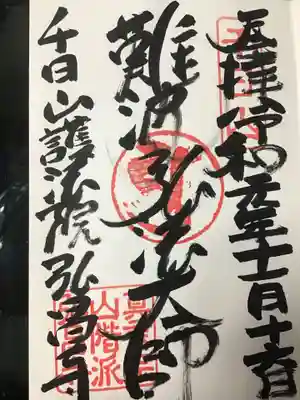 奉拝 令和元年十一月十六日
難波弘法大師
千日山護法院弘昌寺
山階派